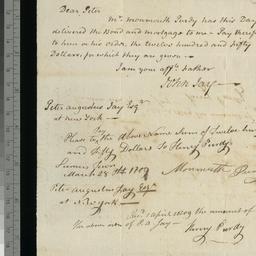 Dear Peter
Mr. Monmouth Purdy has this Day
delivered the Bond and mortgage to me - Pay therefore
to him or his order, the twelve hundred and fifty
Dollars, for which they are given -
I am your affte. father
John Jay
Peter Augustus Jay Esqr.
at New York -
Please to Pay the above Name Sum of Twelve hun
and Fifty Dollars to Henry Purdy
March 28th 1809
Monmouth Pur
Peter Augustus Jay Esqr.
at New York -
1 April 1809 the amount of
the above order of P. A. Jay -
Henry Purdy